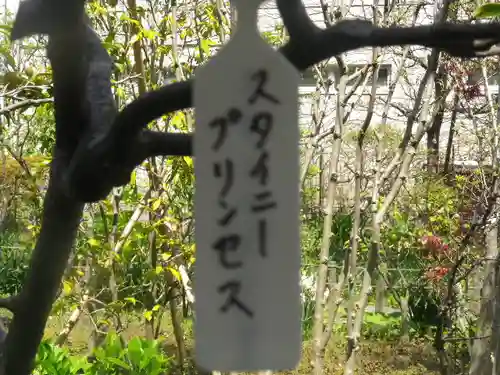 スタイニー
プリンセス